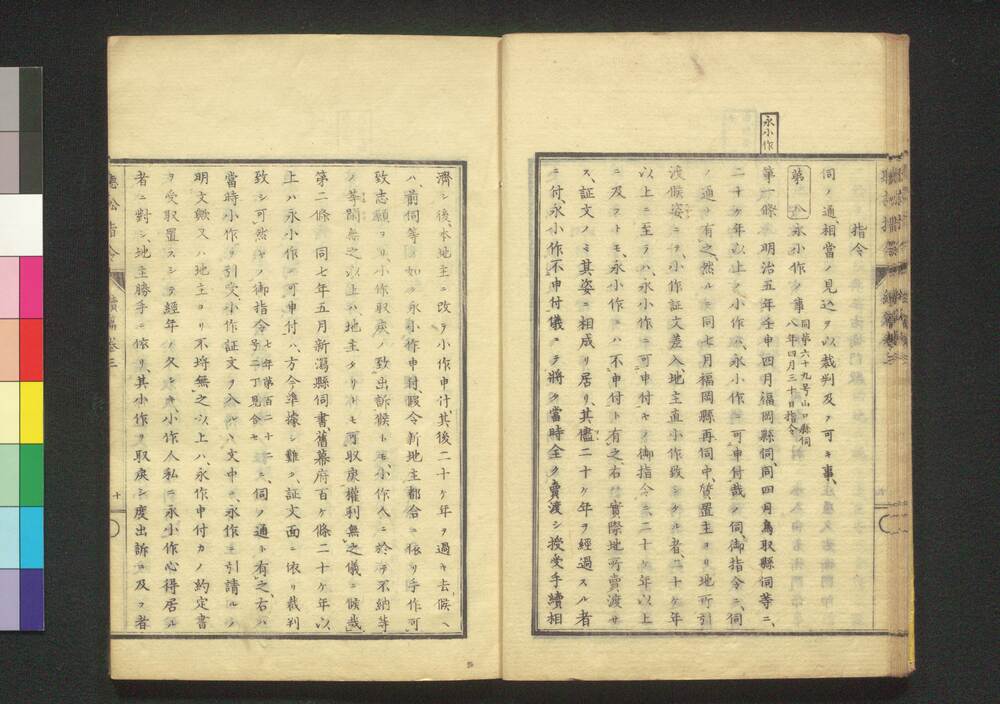 永小作
指令
伺ノ通、相當ノ見込ヲ以裁判及フ可キ事、
第 永小作ノ事 同第六十九号山口縣伺
八年四月三十日指令
第一條 明治五年壬申四月福岡縣伺、同四月鳥取縣伺等ニ、
二十ケ年以上ノ小作ハ、永小作ニ可申付哉ノ伺、御指令ニ、伺
ノ通ト有之、然ルニ同七月福岡縣再伺中、質置主ヨリ地所引
渡候姿ニテ、小作証文差入、地主直小作致シタル者、二十ケ年
以上ニ至ラハ、永小作ニ可申付ヤノ御指令ニ、二十ケ年以上
ニ及フトモ、永小作ニハ不申付ト有之、右ハ實際地所賣渡サ
ス、証文ノミ其姿ニ相成リ居リ、其儘二十ケ年ヲ經過スル者
ニ付、永小作不申付儀ニテ、將タ當時全ク賣渡シ授受手續相
濟シ後、本地主ニ改テ小作申付、其後二十ケ年ヲ過キ去候ヘ
ハ、前伺等ノ如ク永小作申付、假令新地主都合ニ依リ手作可
致志願ヨリ、小作取戻ノ致出訴候トモ、小作人ニ於テ不納等
ノ等閑無之以上ハ、地主タリトモ可取戻權利無之儀ニ候哉、
第二條 同七年五月新潟縣伺書、舊幕府百ケ條二十ケ年以
上ハ永小作ニ可申付ハ、方今準據シ難ク、証文面ニ依リ裁判
致シ可然ヤノ御指令 七年第百二十二
号二丁見合セ ニ、伺ノ通ト有之、右ハ
當時小作ヲ引受、小作証文ヲ入ルヽ文中ニ、永作ニ引請ルノ
明文歟、又ハ地主ヨリ不埒無之以上ハ、永作申付カノ約定書
ヲ受取置スシテ經年ノ久シキ、小作人私ニ永小作心得居ル
者ニ對シ、地主勝手ニ依リ、其小作ヲ取戻シ度出訴ニ及フ者
聽訟指令 續篇卷三
十